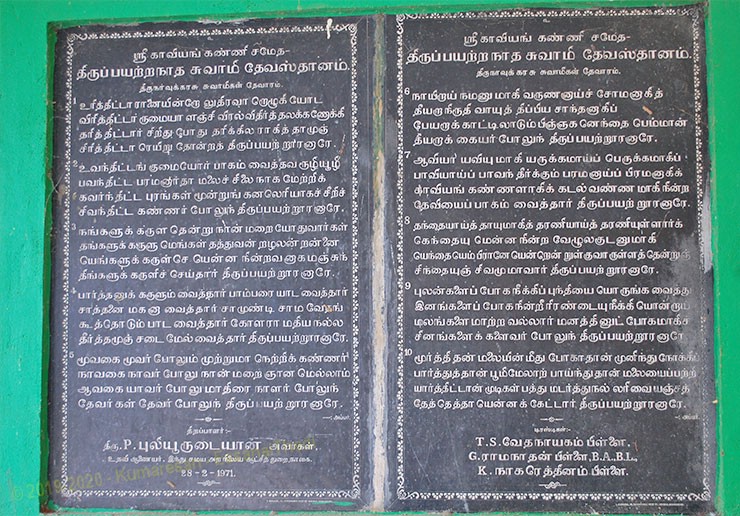 ஸ்ரீ காவியங் கண்ணி சமேத-
திருப்பயற்றநாத சுவாமி தேவஸ்தானம்.
திருநாவுக்கரசு சுவாமிகள் தேவாரம்.
உரித்திட்டா ரானையின்றோ லுதிரவா றொழுகி யோட
விரித்திட்டா ருமையா ளஞ்சி விரல்விதிர்த் தலக்கணோக்கித்
தரித்திட்டார் சிறிது போது தரிக்கில ராகித் தாமுஞ்
சிரித்திட்டா ரெயிறு தோன்றத் திருப்பயற் றூரனாரே.
2 உவந்திட்டங் குமையோர் பாகம் வைத்தவ ரூழியூழி
பவந்திட்ட பரமனார்தா மலைச் சிலை நாக மேற்றிக்
கவர்ந்திட்ட புரங்கள் மூன்றுங் கனலெரியாகச் சீறிச்
சிவந்திட்ட கண்ணர் போலுந் திருப்பயற் றூரனாரே.
3 நங்களுக் கருள தென்று நான் மறை யோதுவார்கள்
தங்களுக் கருளு மெங்கள் தத்துவன் றழலன் றன்னை
யெங்களுக் கருள்செ யென்ன நின்றவனாக மஞ்சுந்
திங்களுக் கருளிச் செய்தார் திருப்பயற் றூரனாரே.
4 பார்த்தனுக் கருளும் வைத்தார் பாம்பரை யாட வைத்தார்
சாத்தனை மகனு வைத்தார் சாமுண்டி சாம வேதங்
கூத்தொடும் பாட வைத்தார் கோளரா மதிய நல்ல
தீர்த்தமுஞ் சடை மேல் வைத்தார் திருப்பயற் றூரனாரே.
5 மூவகை மூவர் போலும் முற்றுமா நெற்றிக் கண்ணர்
நாவகை நாவர் போலு நான் மறை ஞான மெல்லாம்
ஆவகை யாவர் போலு மாதிரை நாளர் போலுந்
தேவர்கள் தேவர் போலுந் திருப்பயற் றூரனாரே.
-அப்பர்.
திறப்பாளர்:-
திரு. P. புலியூருடையான் அவர்கள்,
உதவி ஆணையர், இந்து சமய அற நிலைய ஆட்சித் துறை, நாகை.
28-2-1971.
ஸ்ரீ காவியங் கண்ணி சமேத-
திருப்பயற்றநாத சுவாமி தேவஸ்தானம்.
திருநாவுக்கரசு சுவாமிகள் தேவாரம்.
6 ஞாயிறாய் நமனு மாகி வருணனாய்ச் சோமனாகித்
தீயறா நிருதி வாயுத் திப்பிய சாந்தனாகிப்
பேயறாக் காட்டிலாடும் பிஞ்ஞக னெந்தை பெம்மான்
தீயறாக் கையர் போலுந் திருப்பயற் றூரனாரே.
7 ஆவியா யவியு மாகி யருக்கமாய்ப் பெருக்கமாகிப்
பாவியாய்ப் பாவந் தீர்க்கும் பரமனாய்ப் பிரமனாகிக்
காவியங் கண்ணளாகிக் கடல் வண்ண மாகி நின்ற
தேவியைப் பாகம் வைத்தார் திருப்பயற் றூரனாரே.
8 தந்தையாய்த் தாயுமாகித் தரணியாய்த் தரணியுள்ளார்க்
கெந்தையு மென்ன நின்ற வேழுலகுடனுமாகி
யெந்தையெம் பிரானே யென்றென் றுள்குவாருள்ளத் தென்றுஞ்
சிந்தையுஞ் சிவமுமாவார் திருப்பயற் றூரனாரே.
9 புலன்களைப் போக நீக்கிப் புந்தியை யொருங்க வைத்து
இனங்களைப் போக நின்றீ ரிரண்டையு நீக்கி யொன்றாய்
மலங்களை மாற்ற வல்லார் மனத்தினுட் போகமாகிச்
சினங்களைக் களைவர் போலுந் திருப்பயற் றூரனாரே.
10 மூர்த்தி தன் மலையின் மீது போகாதா முனிந்து நோக்கிப்
பார்த்துத்தான் பூமிமேலாற் பாய்ந்துதான் மலையைப்பற்றி
யார்த்திட்டான் முடிகள் பத்து மடர்த்துநல் லரிவை யஞ்சத்
தேத்தெத்தா வென்னக் கேட்டார் திருப்பயற் றூரனாரே.
-அப்பர்.
டிரஸ்டிகள்:-
T.S. வேதநாயகம் பிள்ளை,
G. ராமநாதன் பிள்ளை, B.A., B.L.,
K. நாகரெத்தினம் பிள்ளை.